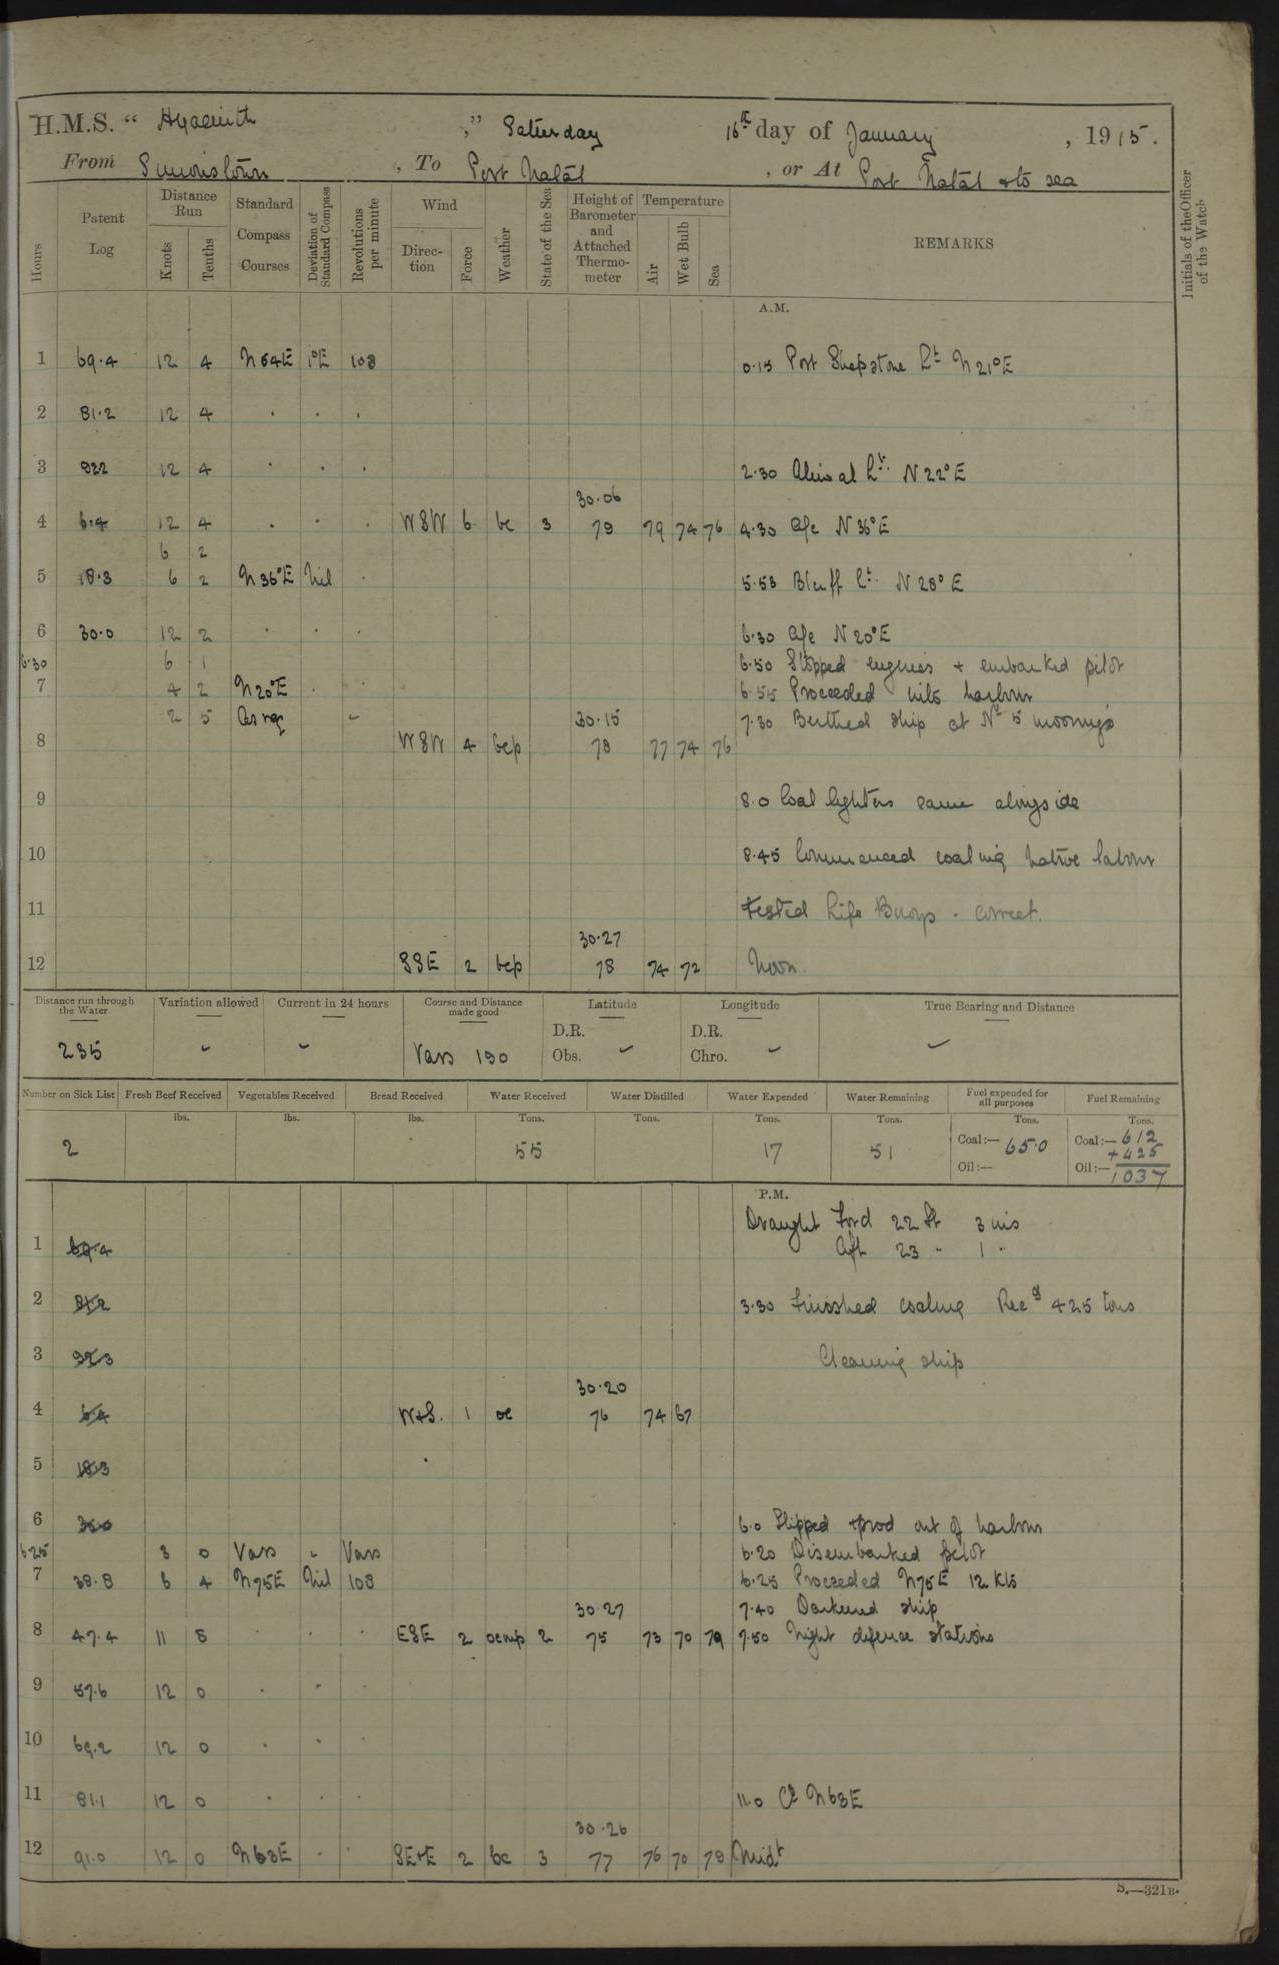 H.M.S. " Hyacinth ," Saturday 16th day of January , 1915.
From Simonstown , To Port Natal , or At Port Natal & to sea
Hours Patent Log Distance Run Knots Tenths Standard Compass Courses Deviation of Standard Compass Revolutions per minute Wind Direction Force Weather State of the Sea Height of Barometer and Attached Thermometer Temperature Air Wet Bulb Sea REMARKS Initials of the Officer of the Watch
A.M.
1 69.4 12 4 N64E 1°E 108 0.15 Port Shepstone Lt N21°E
2 81.2 12 4 . . .
3 922 12 4 . . . 2.30 Aliwal Lt. N22°E
30.06
4 6.4 12 4 . . . WSW 6 bc 3 79 79 74 76 4.30 a/c N36°E
6 2
5 18.3 6 2 N36°E Nil . 5.53 Bluff Lt. N28°E
6 30.0 12 2 . . . 6.30 a/c N20°E
6.30 6 1 6.50 Stopped engines + embarked pilot
7 4 2 N20°E . . 6.55 Proceeded into harbour
2 5 As req - 30.15 7.30 Berthed ship at No 5 moorings
8 WSW 4 bcp 78 77 74 76
9 8.0 Coal lighters came alongside
10 8.45 Commenced coaling native labour
11 Tested Life Buoys - correct.
30.27
12 SSE 2 bcp 78 74 72 Noon.
Distance run through the Water Variation allowed Current in 24 hours Course and Distance made good Latitude Longitude True Bearing and Distance
D.R. D.R.
235 - - Vars 190 Obs. - Chro. - -
Number on Sick List Fresh Beef Received Vegetables Received Bread Received Water Received Water Distilled Water Expended Water Remaining Fuel expended for all purposes Fuel Remaining
lbs. lbs. lbs. Tons. Tons. Tons. Tons. Tons. Tons.
2 55 17 51 Coal:— 65.0 Coal:— 612
+425
Oil:— Oil:— 1037
P.M.
Draught Ford 22 ft 3 ins
1 69.4 Aft 23 " 1 "
2 81.2 3.30 Finished coaling Recd 425 tons
3 92.3 Cleaning ship
30.20
4 6.4 W+S. 1 oc 76 74 67
5 18.3
6 30.0 6.0 Slipped + prod out of harbour
6.25 3 0 Vars " Vars 6.20 Disembarked pilot
7 38.8 6 4 N75E Nil 108 6.25 Proceeded N75E 12 Kts
30.27 7.40 Darkened ship
8 47.4 11 5 . . . ESE 2 ocmp 2 75 73 70 79 7.50 Night defence stations
9 57.6 12 0 . . .
10 69.2 12 0 . . .
11 81.1 12 0 . . . 11.0 Co N63E
30.26
12 91.0 12 0 N63E . . SE+E 2 bc 3 77 76 70 78 Midt
S.—321B.